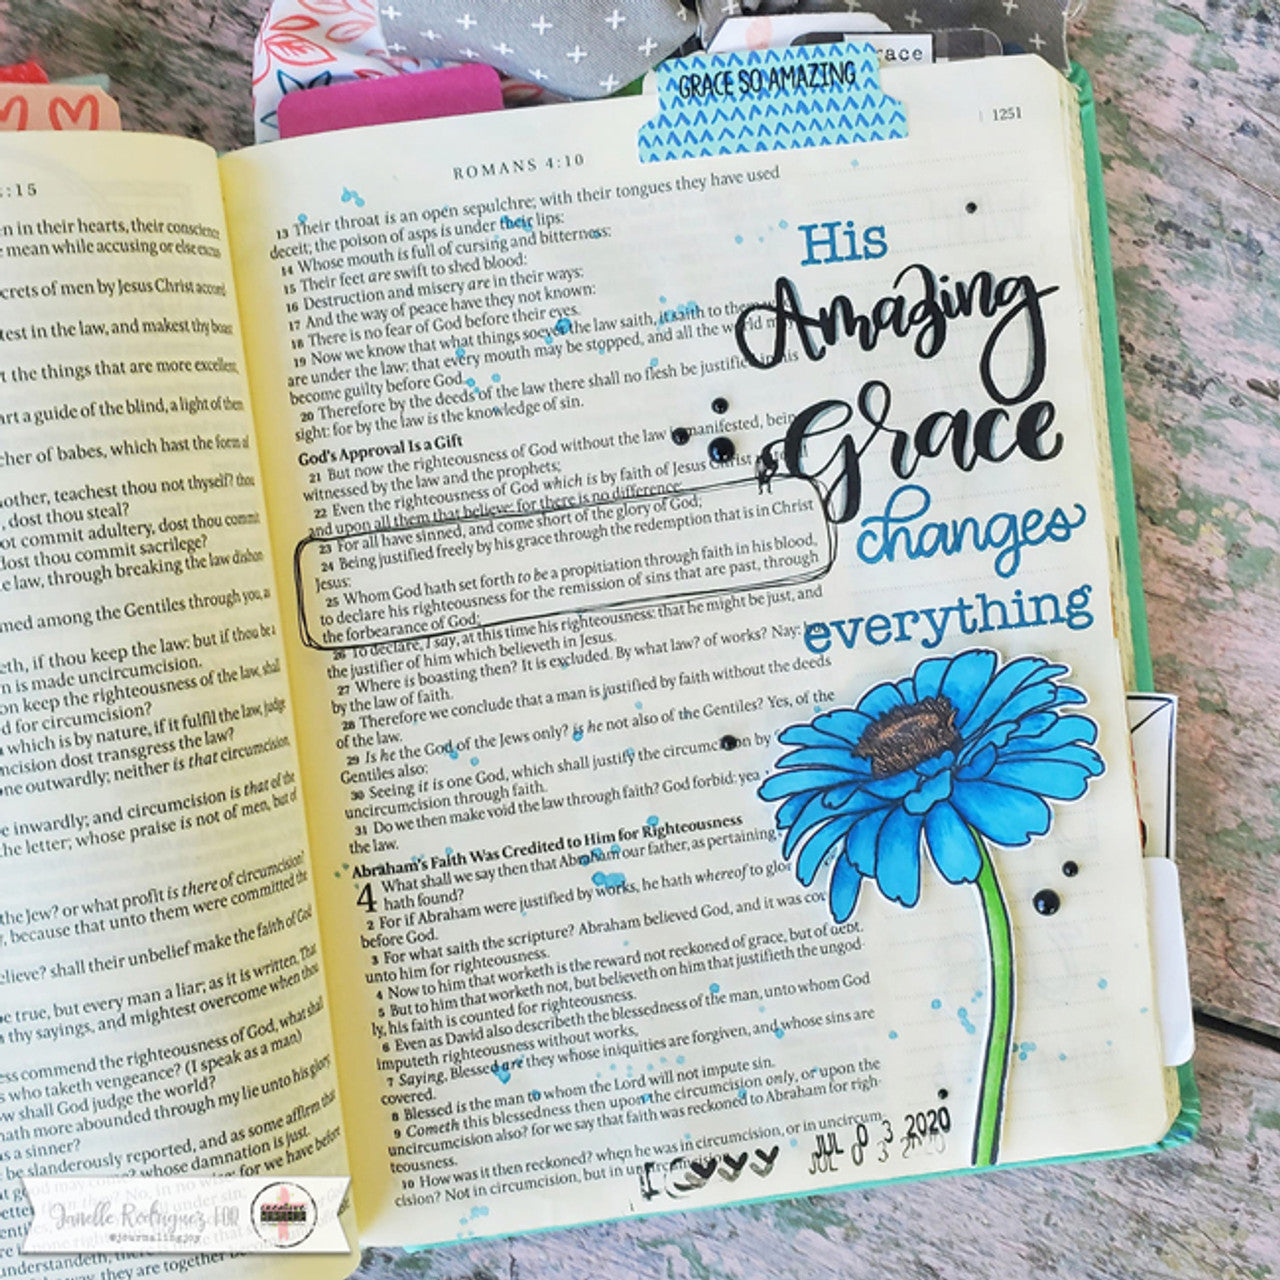 race
GRACE SO AMAZING
1251
ROMANS 4:10
:15
n in their hearts, their conscience
mean while accusing or else
crets of men by Jesus Christ
test in the law, and makest thy boast
t the things that are more excellent,
art a guide of the blind, a light of them
cher of babes, which hast the form of
other, teachest thou not thyself? thou
, dost thou steal?
ot commit adultery, dost thou commit
dost thou commit sacrilege?
e law, through breaking the law dishon
med among the Gentiles through you, a
eth, if thou keep the law: but if thou be a
n is made uncircumcision.
on keep the righteousness of the law, shall
d for circumcision?
which is by nature, if it fulfil the law, judge
ncision dost transgress the law?
ne outwardly; neither is that circumcision,
e inwardly; and circumcision is that of the
he letter; whose praise is not of men, but of
the Jew? or what profit is there of circumcision?
, because that unto them were committed the
elieve? shall their unbelief make the faith of God
e true, but every man a liar; as it is written, That
thy sayings, and mightest overcome when thou
ess commend the righteousness of God, what shall
s who taketh vengeance? (I speak as a man)
w shall God judge the world?
hath more abounded through my lie unto his glory
s a sinner?
be slanderously reported, and as some affirm that
whose damnation is just.
for we have before
they are together
13 Their throat is an open sepulchre; with their tongues they have used
deceit; the poison of asps is under their lips:
14 Whose mouth is full of cursing and bitterness:
15 Their feet are swift to shed blood:
16 Destruction and misery are in their ways:
17 And the way of peace have they not known:
18 There is no fear of God before their eyes.
19 Now we know that what things soever the law saith, it saith to them
are under the law: that every mouth may be stopped, and all the world
become guilty before God.
20 Therefore by the deeds of the law there shall no flesh be justified in his
sight: for by the law is the knowledge of sin.
God's Approval Is a Gift
21 But now the righteousness of God without the law is manifested, being
witnessed by the law and the prophets;
22 Even the righteousness of God which is by faith of Jesus Christ
and upon all them that believe: for there is no difference:
23 For all have sinned, and come short of the glory of God;
24 Being justified freely by his grace through the redemption that is in Christ
Jesus:
25 Whom God hath set forth to be a propitiation through faith in his blood,
to declare his righteousness for the remission of sins that are past, through
the forbearance of God;
26 To declare, I say, at this time his righteousness: that he might be just, and
the justifier of him which believeth in Jesus.
27 Where is boasting then? It is excluded. By what law? of works? Nay:
by the law of faith.
28 Therefore we conclude that a man is justified by faith without the deeds
of the law.
29 Is he the God of the Jews only? is he not also of the Gentiles? Yes, of the
Gentiles also:
30 Seeing it is one God, which shall justify the circumcision by
uncircumcision through faith.
31 Do we then make void the law through faith? God forbid: yea
the law.
Abraham's Faith Was Credited to Him for Righteousness
4 What shall we say then that Abraham our father, as pertaining
hath found?
2 For if Abraham were justified by works, he hath whereof to
before God.
3 For what saith the scripture? Abraham believed God, and it was
unto him for righteousness.
4 Now to him that worketh is the reward not reckoned of grace, but of debt.
5 But to him that worketh not, but believeth on him that justifieth the ungod-
ly, his faith is counted for righteousness.
6 Even as David also describeth the blessedness of the man, unto whom God
imputeth righteousness without works,
7 Saying, Blessed are they whose iniquities are forgiven, and whose sins are
covered.
8 Blessed is the man to whom the Lord will not impute sin.
9 Cometh this blessedness then upon the circumcision only, or upon the
uncircumcision also? for we say that faith was reckoned to Abraham for righ-
teousness.
10 How was it then reckoned? when he was in circumcision, or in uncircum-
cision? Not in circumcision, but in uncircumcision.
His
Amazing
Grace
changes
everything
JUL 0 3 2020
Janelle Rodriguez FOR
@journalingjoy